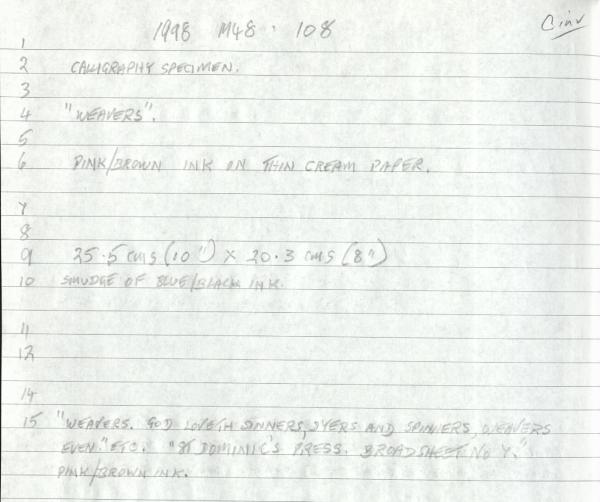 1998 M48 . 108
C inv
1
2 CALLIGRAPHY SPECIMEN.
3
4 "WEAVERS".
5
6 PINK/BROWN INK ON THIN CREAM PAPER.
7
8
9 25.5 cms (10") x 20.3 cms (8")
10 SMUDGE OF BLUE/BLACK INK.
11
12
14
15 "WEAVERS. GOD LOVETH SINNERS, DYERS AND SPINNERS, WEAVERS
EVEN." ETC. "ST DOMINIC'S PRESS. BROADSHEET NO 7."
PINK/BROWN INK.